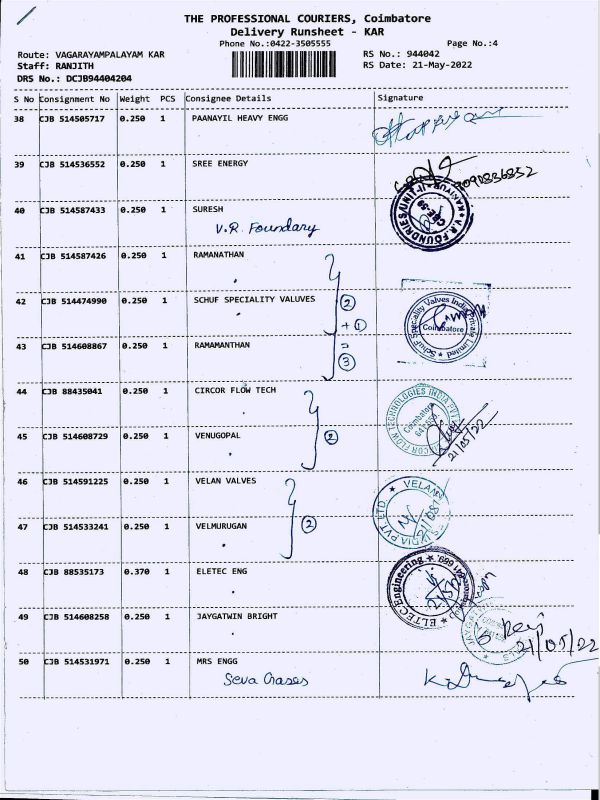 THE PROFESSIONAL COURIERS, Coimbatore
Delivery Runsheet - KAR
Phone No.:0422-3505555 Page No.:4
Route: VAGARAYAMPALAYAM KAR RS No.: 944042
Staff: RANJITH RS Date: 21-May-2022
DRS No.: DCJB94404204
S No Consignment No Weight PCS Consignee Details Signature
38 CJB 514505717 0.250 1 PAANAYIL HEAVY ENGG
39 CJB 514536552 0.250 1 SREE ENERGY
40 CJB 514587433 0.250 1 SURESH
V.R. Foundary
V.R. FOUNDRIES (UNIT-II) KANIYUR
CBE-59
41 CJB 514587426 0.250 1 RAMANATHAN
42 CJB 514474990 0.250 1 SCHUF SPECIALITY VALUVES
2
+ 1
=
3
Schuf Speciality Valves India Private Limited
Coimbatore
43 CJB 514608867 0.250 1 RAMAMANTHAN
44 CJB 88435041 0.250 1 CIRCOR FLOW TECH
CIRCOR FLOW TECHNOLOGIES INDIA PVT
Coimbatore
21/05/22
45 CJB 514608729 0.250 1 VENUGOPAL
2
46 CJB 514591225 0.250 1 VELAN VALVES
VELAN
INDIA PVT LTD.
47 CJB 514533241 0.250 1 VELMURUGAN
2
48 CJB 88535173 0.370 1 ELETEC ENG
ELTEC Engineering
49 CJB 514608258 0.250 1 JAYGATWIN BRIGHT
21/05/22
50 CJB 514531971 0.250 1 MRS ENGG
Seva Chases